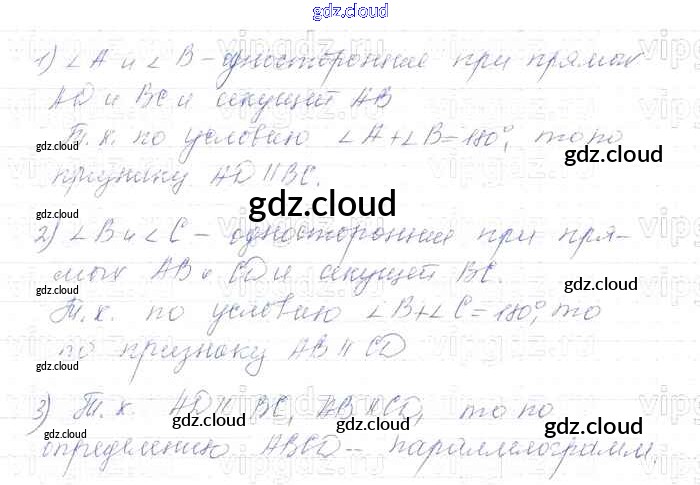 gdz.cloud
1) ∠A и ∠B – односторонние при прямых
AD и BC и секущей AB
Т. к. по условию ∠A+∠B=180°, то по
признаку AD ∥ BC.
2) ∠B и ∠C – односторонние при пря-
мых AB и CD и секущей BC.
Т. к. по условию ∠B+∠C=180°, то
по признаку AB ∥ CD
3) Т. к. AD ∥ BC, AB ∥ CD, то по
определению ABCD – параллелограмм.
gdz.cloud
gdz.cloud
gdz.cloud
gdz.cloud
gdz.cloud
gdz.cloud
gdz.cloud
gdz.cloud
gdz.cloud
gdz.cloud
gdz.cloud
gdz.cloud
gdz.cloud